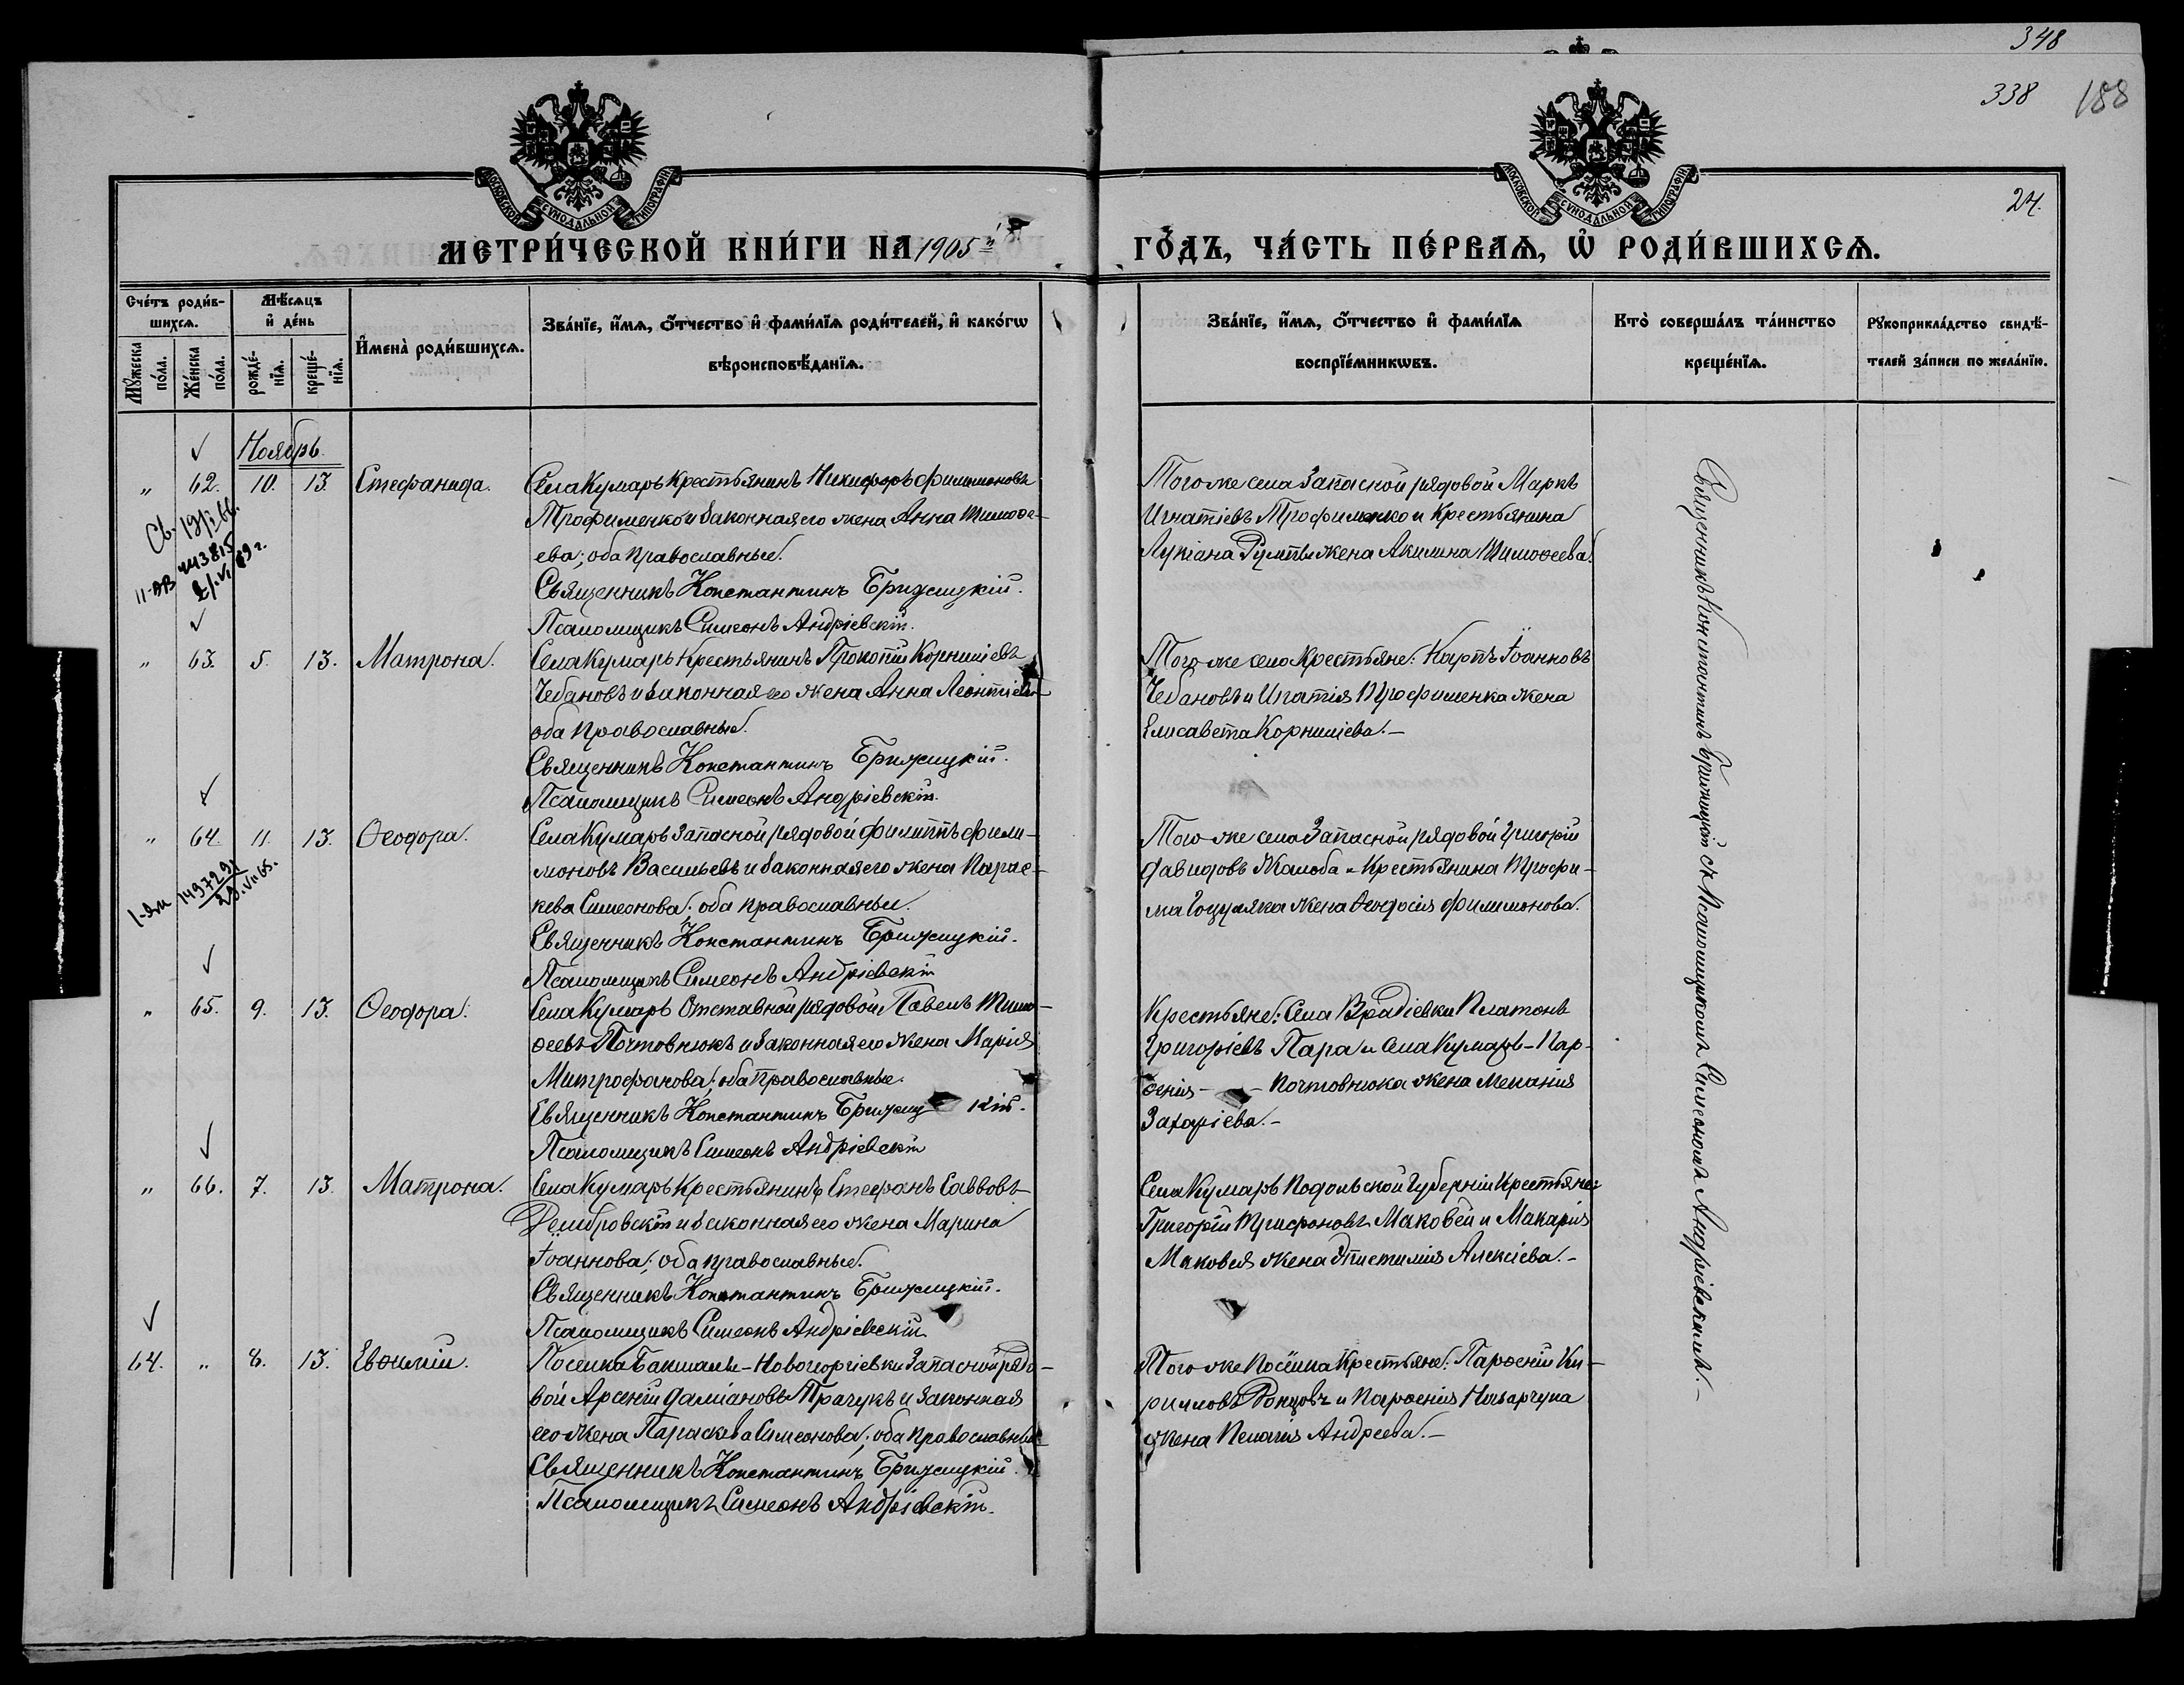 348
338 188
24.
МОСКОВСКОЙ СѴНОДАЛЬНОЙ ТИПОГРАФІИ
МОСКОВСКОЙ СѴНОДАЛЬНОЙ ТИПОГРАФІИ
МЕТРИ́ЧЕСКОЙ КНИ́ГИ НА 1905й
ГО́ДЪ, ЧА́СТЬ ПЕ́РВАѦ, Ѡ҆ РОДИ́ВШИХСѦ.
Сче́тъ роди́в-
шихсѧ.
Мꙋ́жеска по́ла.
Же́нска по́ла.
Мѣ́сѧцъ
и҆ де́нь
рожде́-нїѧ.
креще́-нїѧ.
И҆мена̀ роди́вшихсѧ.
Зва́нїе, и҆́мѧ, о҆́тчество и҆ фами́лїѧ роди́телей, и҆ како́гѡ
вѣроисповѣ́данїѧ.
Зва́нїе, и҆́мѧ, о҆́тчество и҆ фами́лїѧ
воспрїе́мникѡвъ.
Кто̀ соверша́лъ та́инство
креще́нїѧ.
Рꙋкоприкла́дство свидѣ́-
телей за́писи по жела́нїю.
Ноябрь.
" 62. 10. 13. Стефанида.
Села Кумаръ Крестьянинъ Никифоръ Филимоновъ
Трофименко и законная его жена Анна Тимоѳе-
ева; оба православные.
Священникъ Константинъ Брижицкій.
Псаломщикъ Симеонъ Андріевскій.
Того же села Запасной рядовой Маркъ
Игнатіевъ Трофименко и Крестьянина
Лукіана жена Акилина Тимоѳеева.
Св.
II-ЯВ 443815
" 63. 5. 13. Матрона.
Села Кумаръ Крестьянинъ Прокопій Корниліевъ
Чебановъ и законная его жена Анна Леонтіева
оба православные.
Священникъ Константинъ Брижицкій.
Псаломщикъ Симеонъ Андріевскій.
Того же села Крестьяне: Карпъ Іоанновъ
Чебановъ и Игнатія Трофименка жена
Елисавета Корниліева.-
" 64. 11. 13. Ѳеодора.
Села Кумаръ Запасной рядовой Филиппъ Фили-
моновъ Васильевъ и законная его жена Парас-
кева Симеонова; оба православные.
Священникъ Константинъ Брижицкій.
Псаломщикъ Симеонъ Андріевскій
Того же села Запасной рядовой Григорій
Давидовъ Жалоба и Крестьянина Трофи-
ма Гоцуляка жена Ѳеодосія Филимонова.
1497291
29.VI.65.
" 65. 9. 13. Ѳеодора.
Села Кумаръ Отставной рядовой Павелъ Тимо-
ѳеевъ Почтовнюкъ и законная его жена Марія
Митрофанова; оба православные.
Священникъ Константинъ Брижицкій.
Псаломщикъ Симеонъ Андріевскій
Крестьяне: Села Врадіевки Платонъ
Григоріевъ Пара и Села Кумаръ - Пар-
ѳенія - - Почтовнюка жена Меланія
Захаріева.-
" 66. 7. 13. Матрона.
Села Кумаръ Крестьянинъ Стефанъ Савовъ
Дембровскій и законная его жена Марина
Іоаннова; оба православные.
Священникъ Константинъ Брижицкій.
Псаломщикъ Симеонъ Андріевскій
Села Кумаръ Подольской Губерніи Крестьяне:
Григорій Трифоновъ Маковей и Макарія
Маковея жена Епистимія Алексіева.-
64. " 8. 13. Евѳимій.
Поселка Бакшалы-Новогеоргіевки Запасной рядо-
вой Арсеній Даміановъ Ткачукъ и законная
его жена Параскева Симеонова; оба православные
Священникъ Константинъ Брижицкій.
Псаломщикъ Симеонъ Андріевскій.
Того же Посёлка Крестьяне: Парѳеній Ки-
рилловъ Донцовъ и Парѳенія
жена Пелагія Андреева.-
Священникъ Константинъ Брижицкій съ Псаломщикомъ Симеономъ Андріевскимъ.-